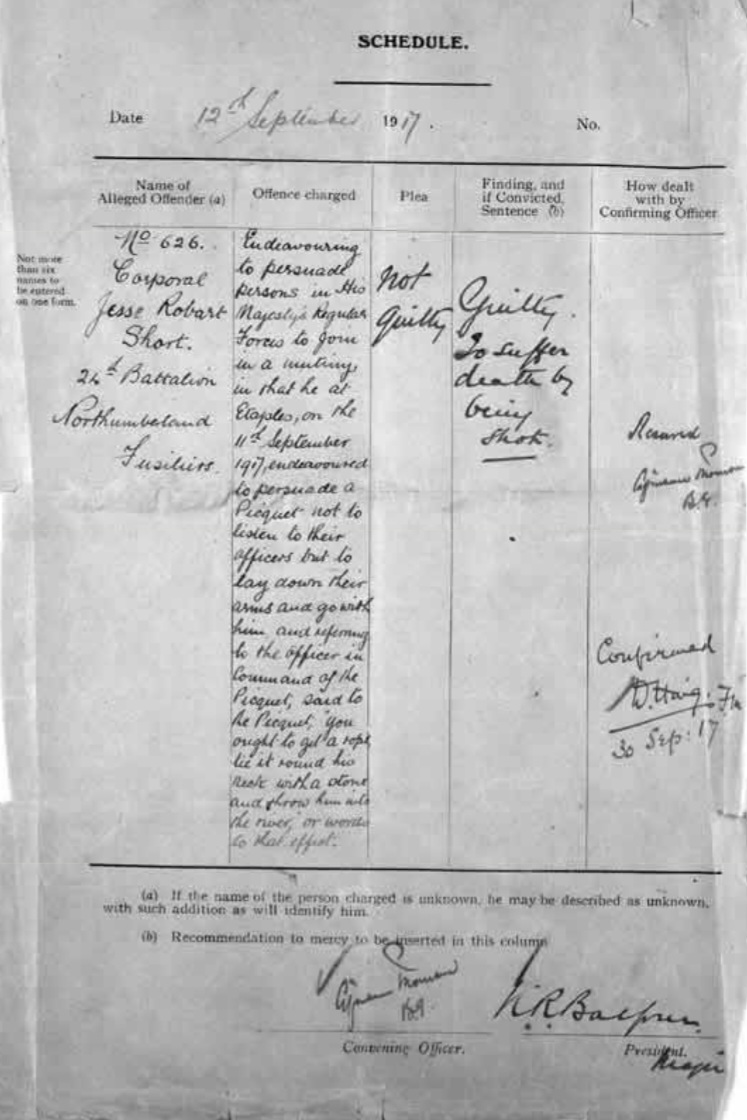 SCHEDULE.
Date 12th September 1917. No.
Name of
Alleged Offender (a)
Offence charged
Plea
Finding, and
if Convicted,
Sentence (b)
How dealt
with by
Confirming Officer
Not more
than six
names to
be entered
on one form.
No 626.
Corporal
Jesse Robart
Short.
24th Battalion
Northumberland
Fusiliers.
Endeavouring
to persuade
persons in His
Majesty's Regular
Forces to join
in a mutiny,
in that he at
Etaples, on the
11th September
1917, endeavoured
to persuade a
Picquet not to
listen to their
officers but to
lay down their
arms and go with
him, and referring
to the officer in
Command of the
Picquet, said to
the Picquet, "you
ought to get a rope,
tie it round his
neck with a stone
and throw him into
the river," or words
to that effect.
Not
Guilty
Guilty.
To suffer
death by
being
shot.
Reserved
B.G.
Confirmed
D. Haig. F.M.
30 Sep: 17
(a) If the name of the person charged is unknown, he may be described as unknown,
with such addition as will identify him.
(b) Recommendation to mercy to be inserted in this column
B.G.
Convening Officer.
President.
Major